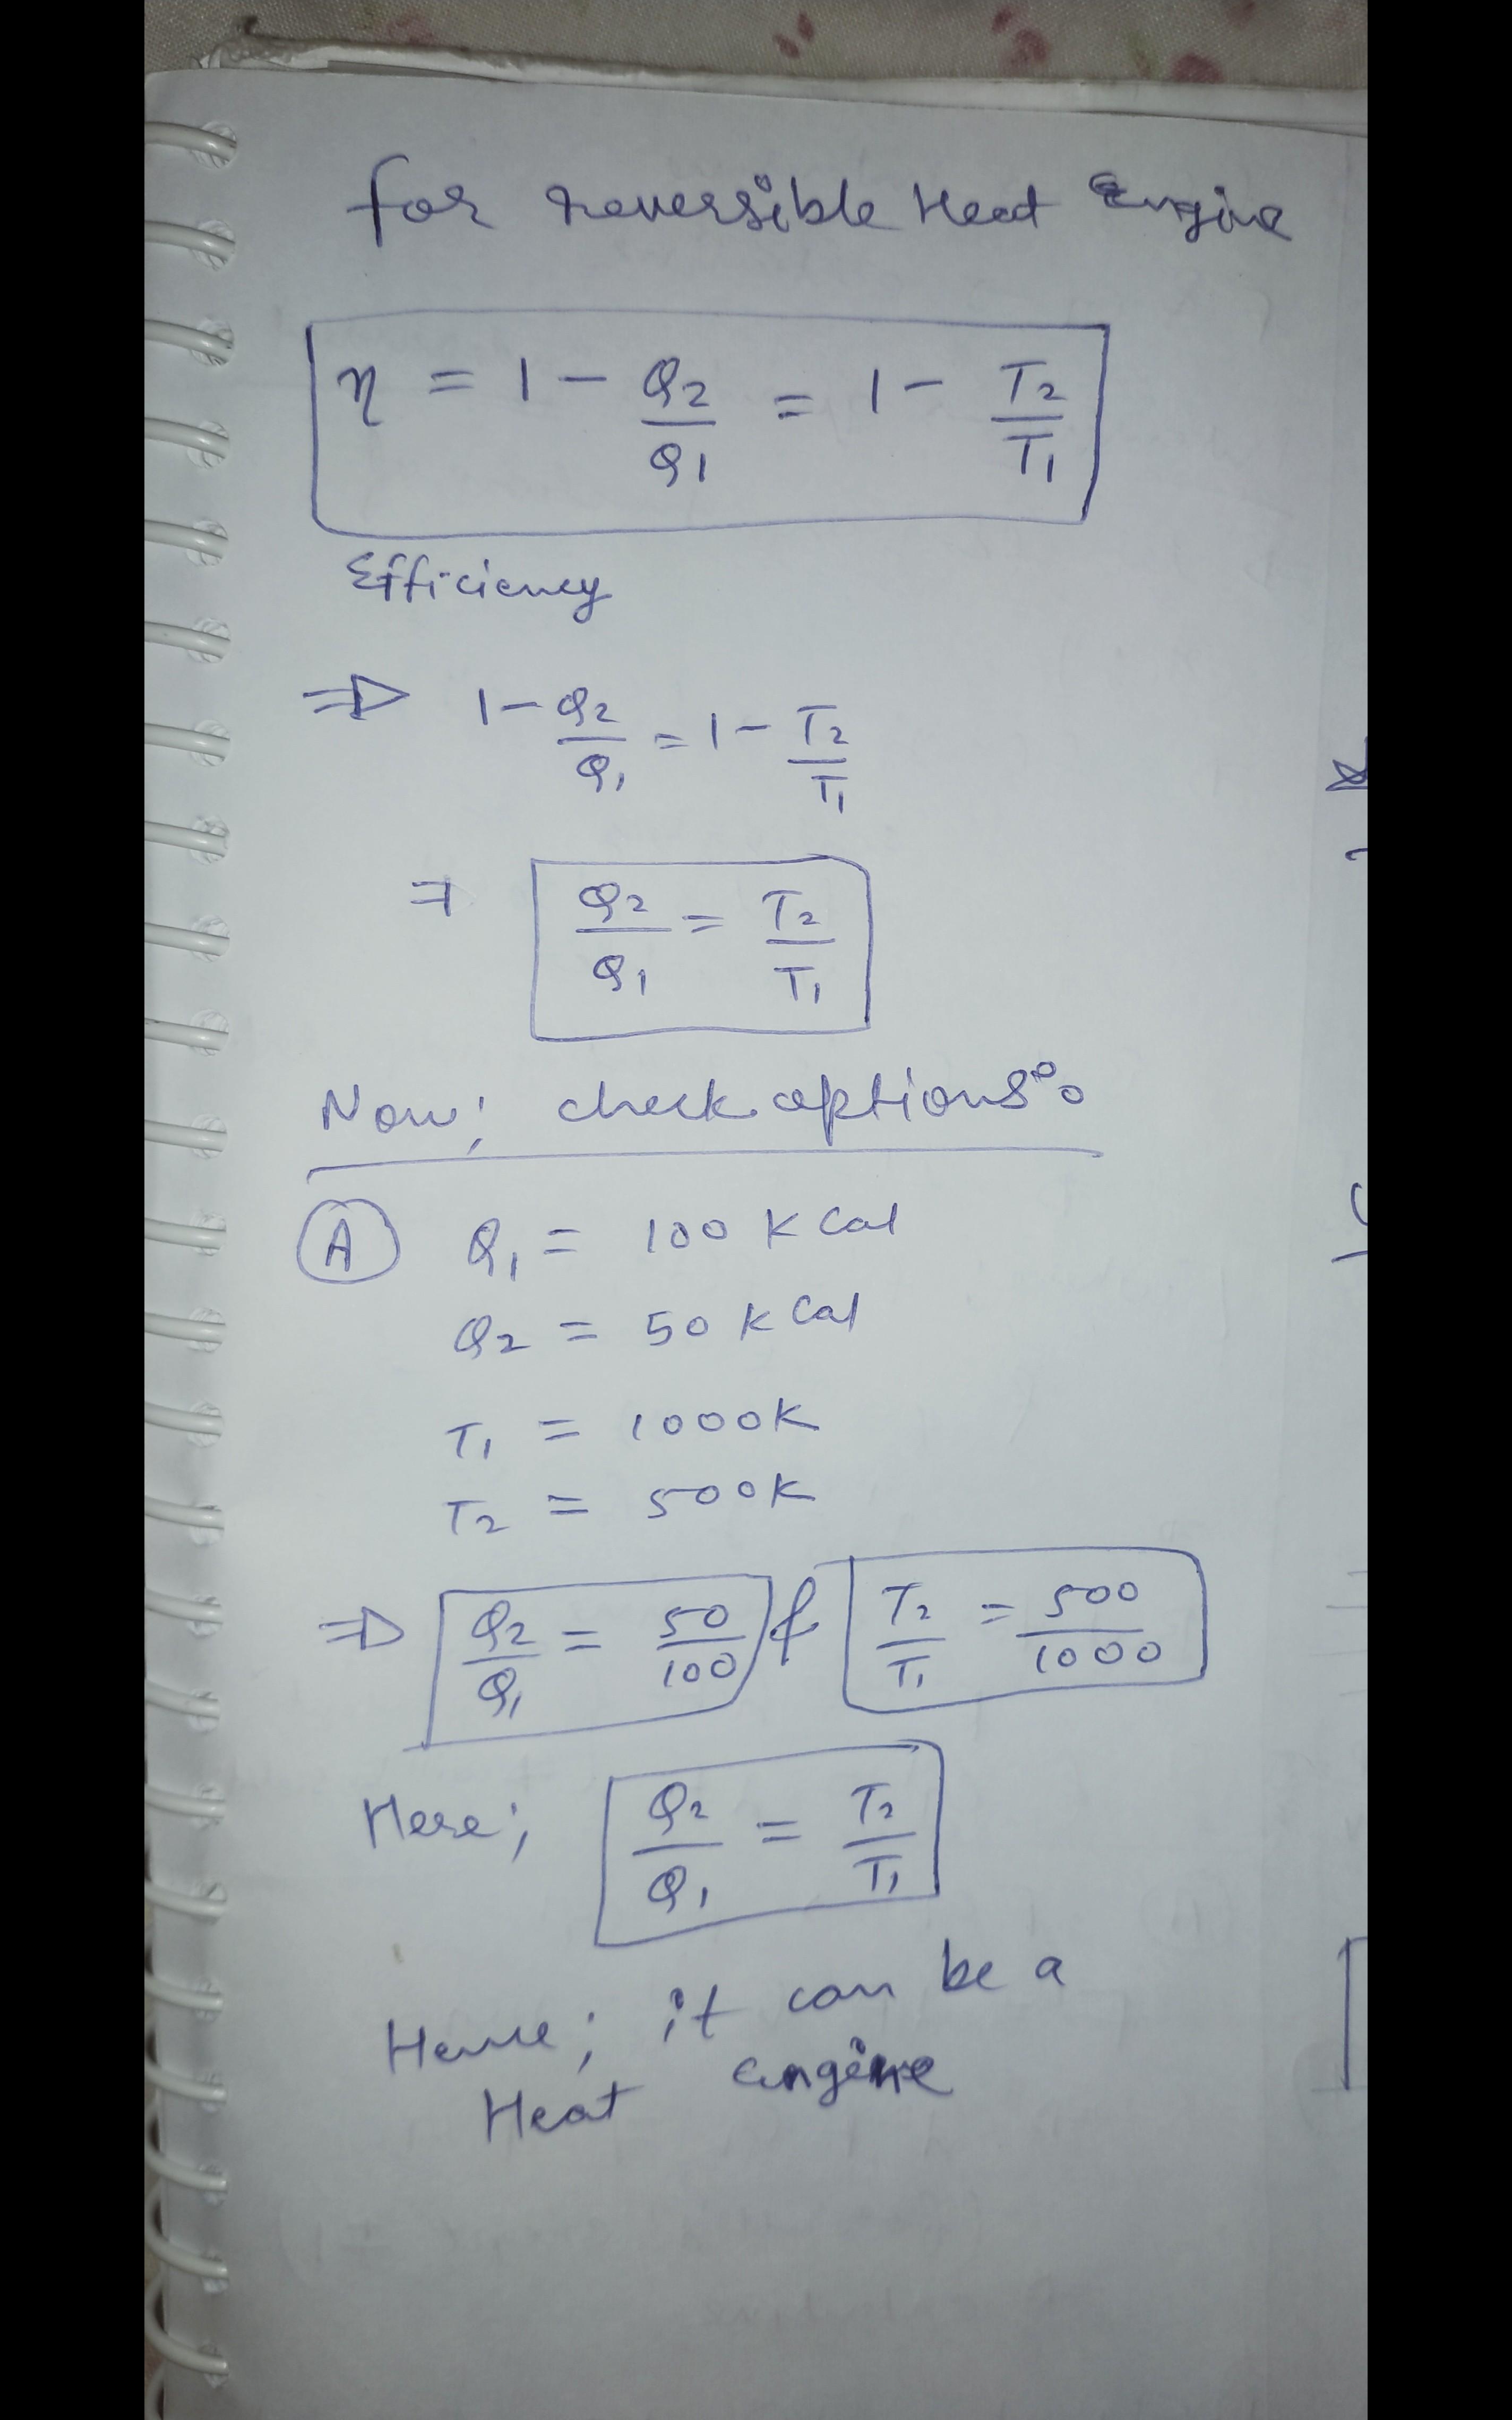 for reversible Heat Engine
η = 1 - Q2/Q1 = 1 - T2/T1
Efficiency
⇒ 1 - Q2/Q1 = 1 - T2/T1
⇒ Q2/Q1 = T2/T1
Now; check options:
A Q1 = 100 K Cal
Q2 = 50 K Cal
T1 = 1000K
T2 = 500K
⇒ Q2/Q1 = 50/100 & T2/T1 = 500/1000
Here; Q2/Q1 = T2/T1
Hence; it can be a
Heat engine